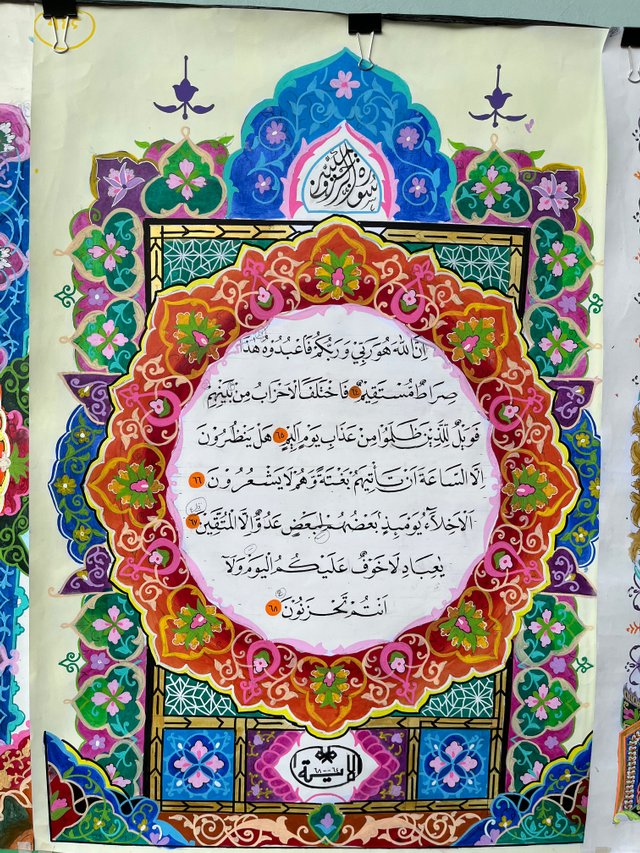 سورة الزخرف
اِنَّ اللّٰهَ هُوَ رَبِّيْ وَرَبُّكُمْ فَاعْبُدُوْهُ هٰذَا
صِرَاطٌ مُّسْتَقِيْمٌ ٦٤ فَاخْتَلَفَ الْاَحْزَابُ مِنْ بَيْنِهِمْ
فَوَيْلٌ لِّلَّذِيْنَ ظَلَمُوْا مِنْ عَذَابِ يَوْمٍ اَلِيْمٍ ٦٥ هَلْ يَنْظُرُوْنَ
اِلَّا السَّاعَةَ اَنْ تَأْتِيَهُمْ بَغْتَةً وَّهُمْ لَا يَشْعُرُوْنَ ٦٦
اَلْاَخِلَّاۤءُ يَوْمَئِذٍ بَعْضُهُمْ لِبَعْضٍ عَدُوٌّ اِلَّا الْمُتَّقِيْنَ ٦٧
يٰعِبَادِ لَا خَوْفٌ عَلَيْكُمُ الْيَوْمَ وَلَآ
اَنْتُمْ تَحْزَنُوْنَ ٦٨
الاية
٦٤-٦٨